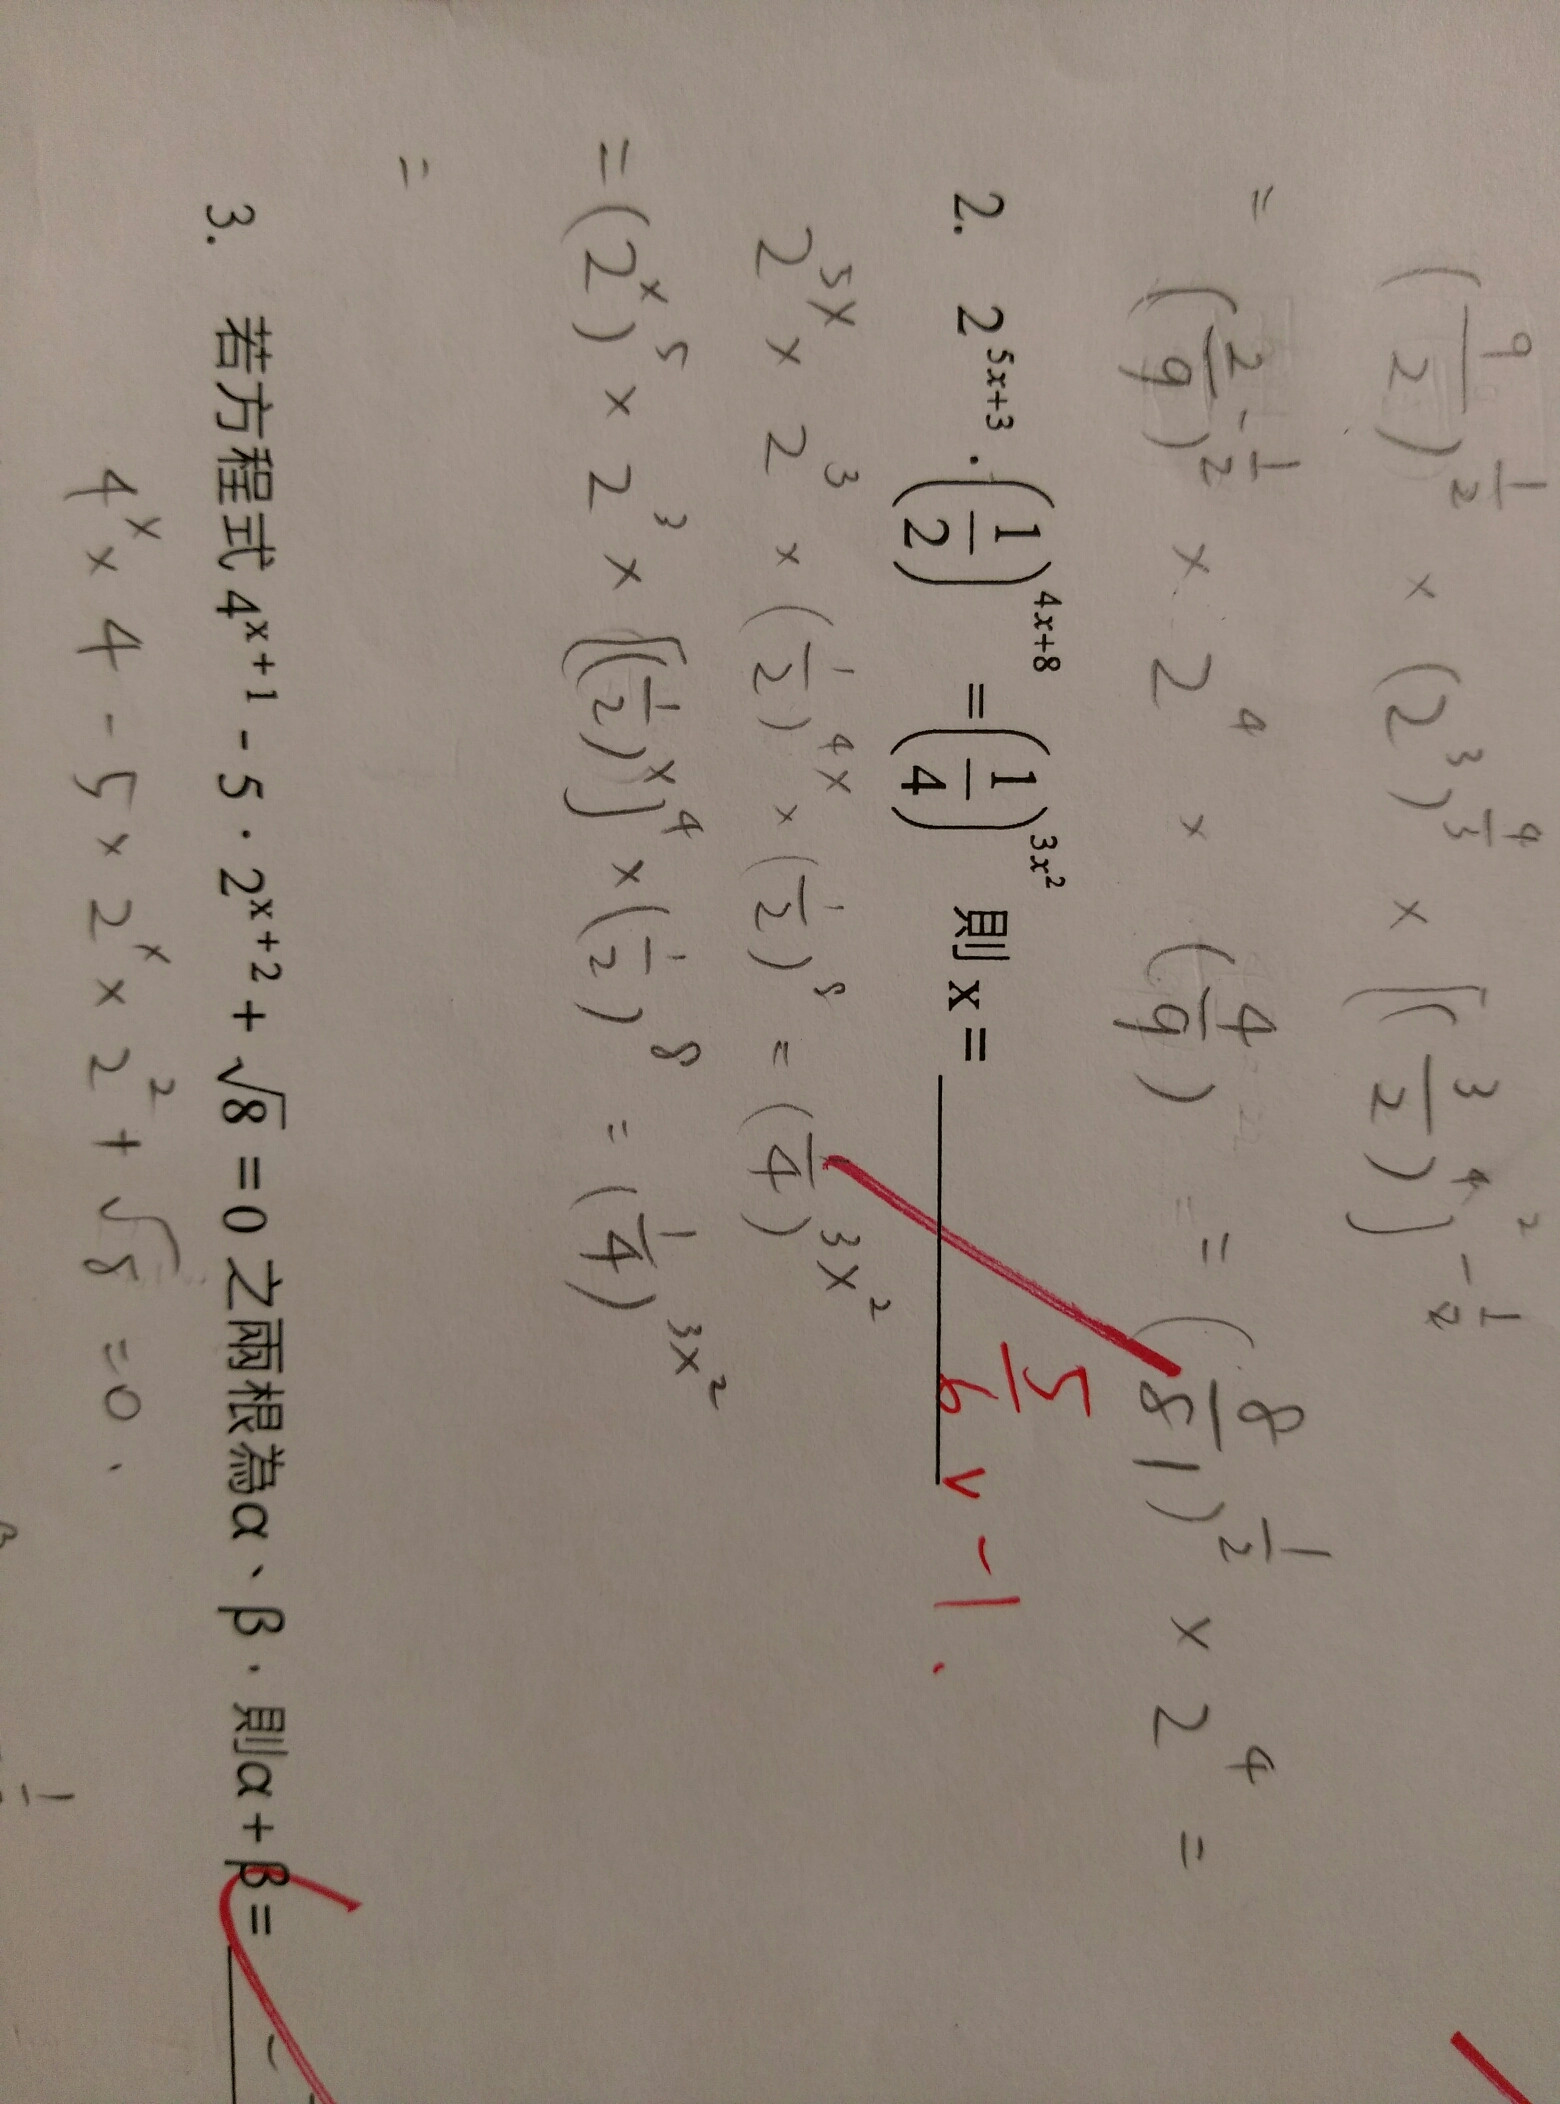 (9/2)^(1/2) × (2^3)^(4/3) × [(3/2)^4]^(-1/2)
= (2/9)^(-1/2) × 2^4 × (4/9) = (8/81)^(1/2) × 2^4 =
2. 2^(5x+3) · (1/2)^(4x+8) = (1/4)^(3x^2) 則 x = ____ 5/6 v -1.
2^(5x) × 2^3 × (1/2)^(4x) × (1/2)^8 = (1/4)^(3x^2)
= (2^x)^5 × 2^3 × [(1/2)^x]^4 × (1/2)^8 = (1/4)^(3x^2)
=
3. 若方程式 4^(x+1) - 5 · 2^(x+2) + √8 = 0 之兩根為α、β,則α + β =
4^x × 4 - 5 × 2^x × 2^2 + √8 = 0.